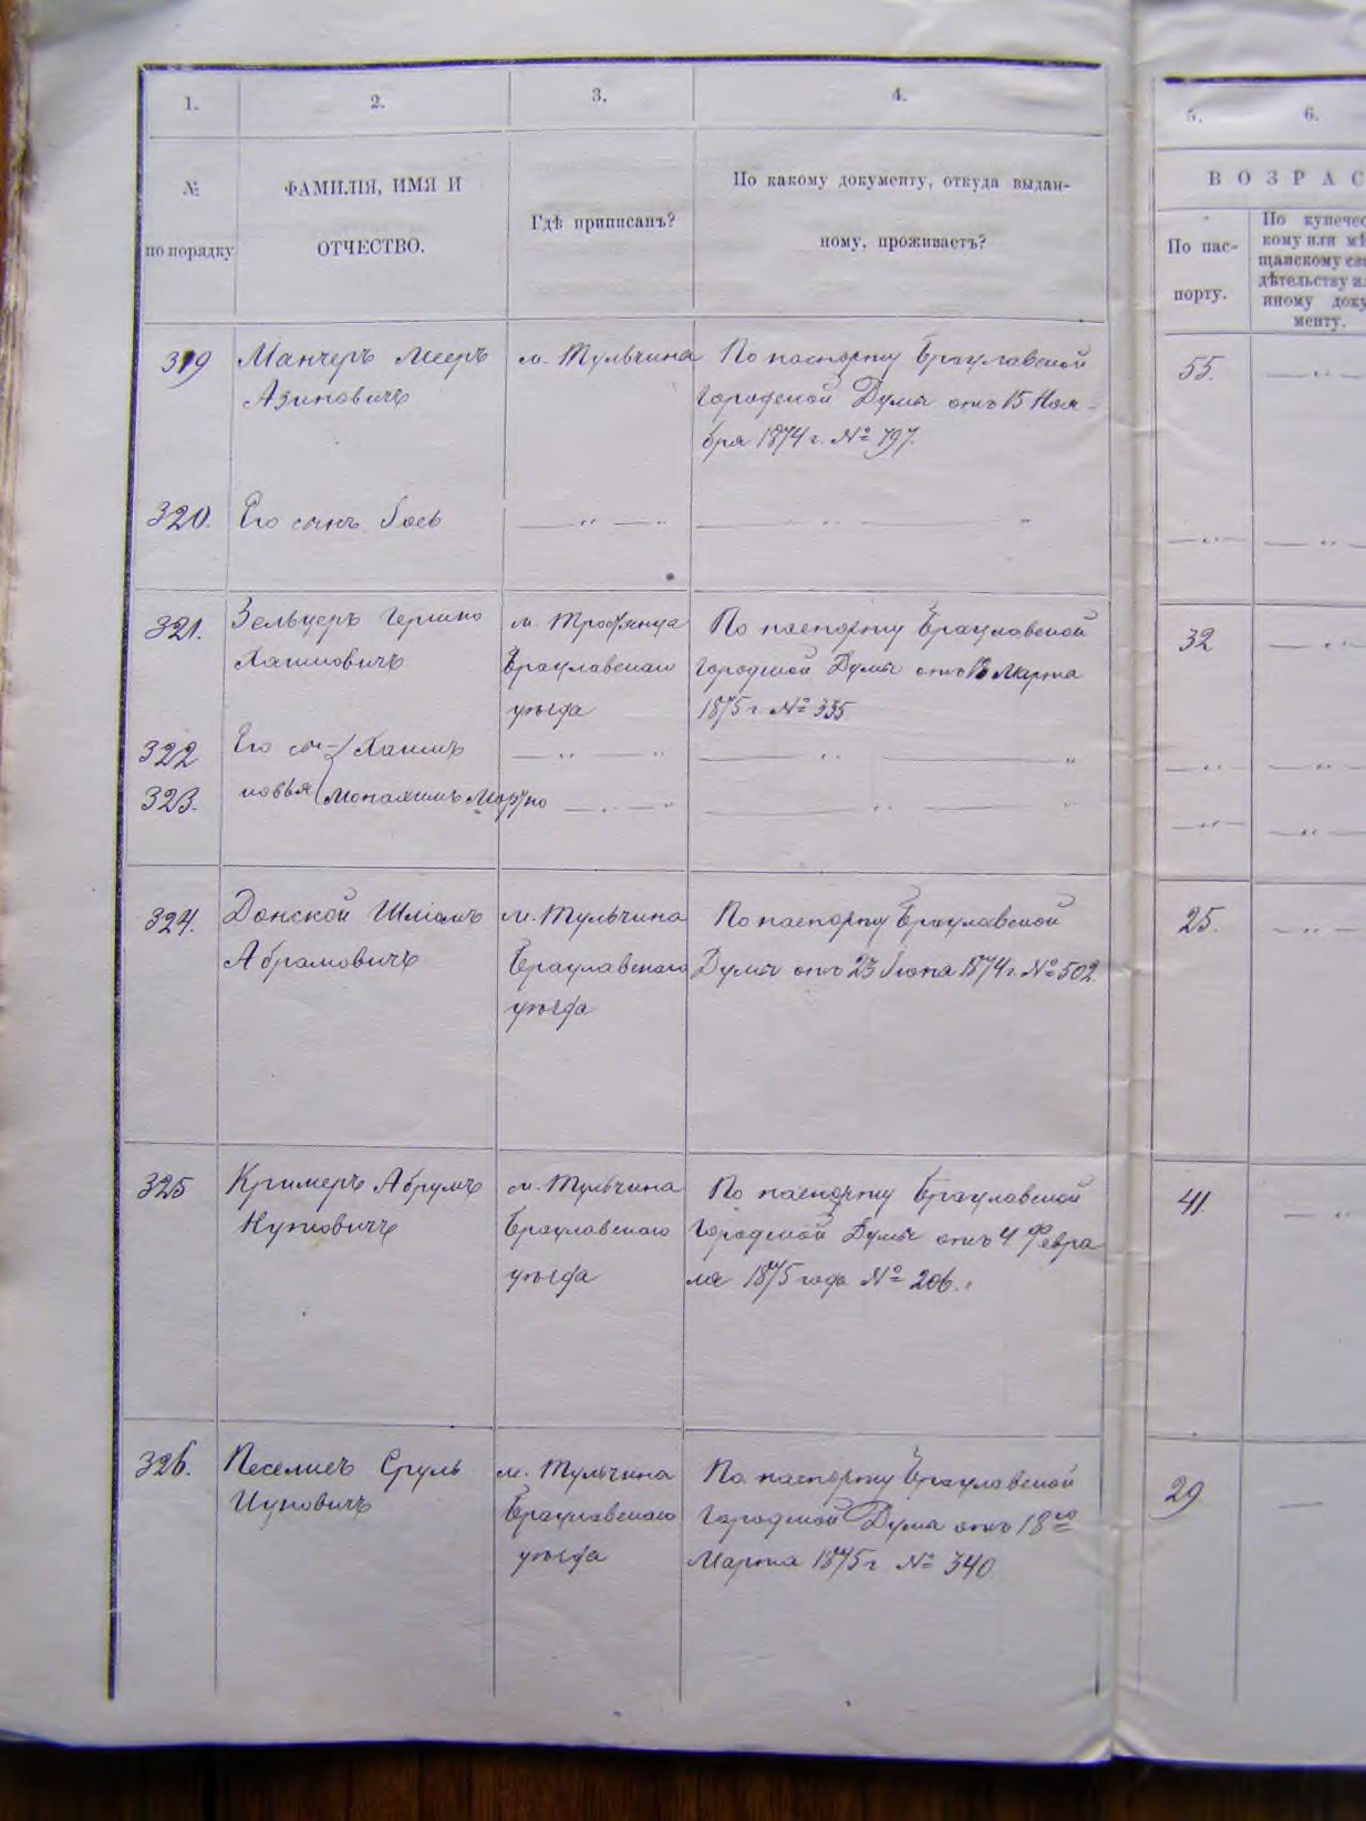 1.
2.
3.
4.
5.
6.
№
по порядку
ФАМИЛІЯ, ИМЯ И
ОТЧЕСТВО.
Гдѣ приписанъ?
По какому документу, откуда выдан-
ному, проживаетъ?
ВОЗРАС
По пас-
порту.
По купечес
кому или мѣ
щанскому сви
дѣтельству ил
иному доку
менту.
319 Манчеръ Мееръ м. Тульчина По паспорту Брацлавской 55.
Городской Думы отъ 15 Ноя-
бря 1874 г. № 797.
320. Его сынъ Іось
321. Зельцеръ Гершко м. Тростянца По паспорту Брацлавской 32
Хаимовичъ Брацлавскаго Городской Думы отъ Марта
уѣзда 1875 г. № 335
322 Его сы- Хаимъ
323. новья
324. Донской Шліомъ м. Тульчина По паспорту Брацлавской 25.
Абрамовичъ Брацлавскаго Думы отъ 23 Іюня 1874 г. № 502.
уѣзда
325 Кримеръ Абрумъ м. Тульчина По паспорту Брацлавской 41.
Брацлавскаго Городской Думы отъ 4 Февра
уѣзда ля 1875 года № 206.
326. Сруль м. Тульчина По паспорту Брацлавской 29
Брацлавскаго Городской Думы отъ 18го
уѣзда Марта 1875 г № 340